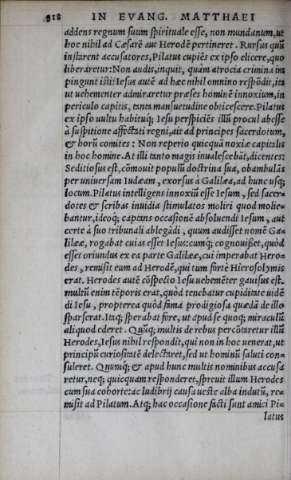 918 IN EVANG. MATTHAEI
addens regnum suum spirituale esse, non mundanum, ut
hoc nihil ad Cæsarẽ aut Herodẽ pertineret. Rursus quũ
instarent accusatores, Pilatus cupiẽs ex ipso elicere, quo
liberaretur: Non audis, inquit, quàm atrocia crimina im
pingunt isti? Iesus autẽ ad hæc nihil omnino respõdit, ita
ut uehementer admiraretur præses hominẽ innoxium, in
periculo capitis, tanta mansuetudine obticescere. Pilatus
ex ipso uultu habituq; Iesu perspiciẽs illũ procul abesse
à suspitione affectati regni, ait ad principes sacerdotum,
& horũ comites: Non reperio quicquã noxiæ capitalis
in hoc homine. At illi tanto magis inualescebãt, dicentes:
Seditiosus est, cõmouit populũ doctrina sua, obambulãs
per uniuersam Iudæam, exorsus à Galilæa, ad hunc usq;
locum. Pilatus intelligens innoxiũ esse Iesum, sed sacer-
dotes & scribas inuidia stimulatos moliri quod molie-
bantur, ideoq; captans occasionẽ absoluendi Iesum, aut
certe à suo tribunali ablegãdi, quum audisset nomẽ Ga-
lilææ, rogabat cuias esset Iesus: cumq; cognouisset, quòd
esset oriundus ex ea parte Galilææ, cui imperabat Hero-
des, remisit eum ad Herodẽ, qui tum fortè Hierosolymis
erat. Herodes autẽ cõspecto Iesu uehemẽter gauisus est.
multũ enim tẽporis erat, quòd tenebatur cupiditate uidẽ
di Iesu, propterea quòd fama prodigiosa quædã de illo
sparserat. Itaq; sperabat fore, ut apud se quoq; miraculũ
aliquod ederet. Quũq; multis de rebus percõtaretur illũ
Herodes, Iesus nihil respondit, qui non in hoc uenerat, ut
principũ curiositatẽ delectaret, sed ut hominũ saluti con-
suleret. Quumq; & apud hunc multis nominibus accusa
retur, neq; quicquam responderet, spreuit illum Herodes
cum sua cohorte: ac ludibrij causa ueste alba indutũ, re-
misit ad Pilatum. Atq; hac occasione facti sunt amici Pi-
latus